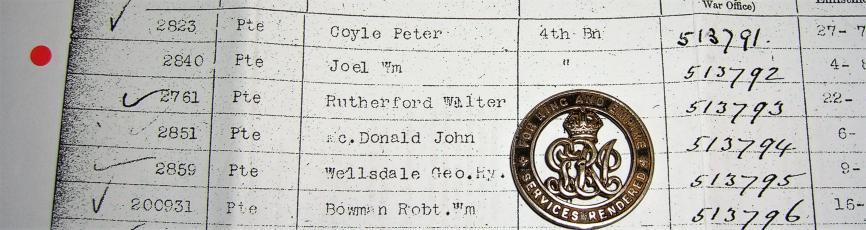 War Office)
2823 Pte Coyle Peter 4th Bn 513791. 27- 7
2840 Pte Joel Wm " 513792 4- 8
2761 Pte Rutherford Walter 513793 22-
2851 Pte Mc.Donald John 513794 6-
2859 Pte Wellsdale Geo.Hy. 513795 9-
200931 Pte Bowman Robt.Wm 513796 16-
FOR KING AND EMPIRE
SERVICES RENDERED